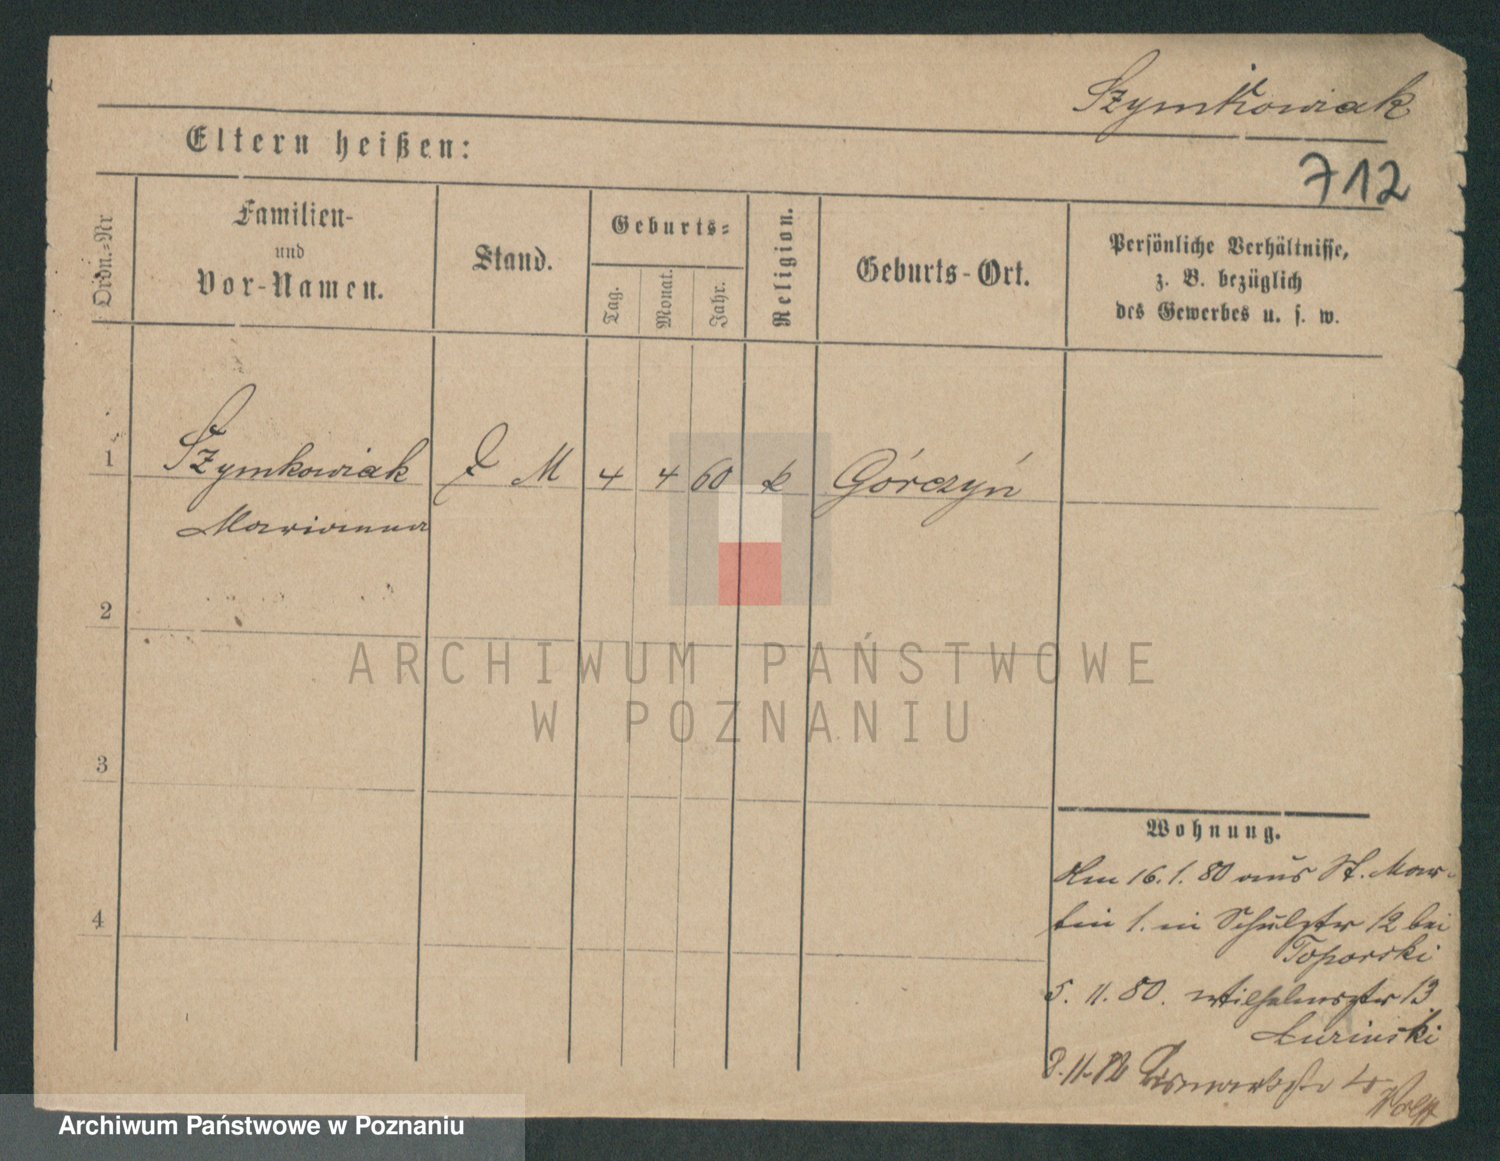 Szymkowiak
Eltern heißen:
712
Ordn.=Nr
Familien-
und
Vor-Namen.
Stand.
Geburts=
Tag.
Monat.
Jahr.
Religion.
Geburts-Ort.
Persönliche Verhältnisse,
z. B. bezüglich
des Gewerbes u. s. w.
1
Szymkowiak M 4 4 60 k Górczyń
Marianna
2
3
4
Wohnung.
Am 16. 1. 80 aus St. Mar-
tin 1. in Schulstr 12 bei
Toporski
5. 11. 80. Wilhelmstr 13
8. 11. 82 Bismarckstr
ARCHIWUM PAŃSTWOWE
W POZNANIU
Archiwum Państwowe w Poznaniu